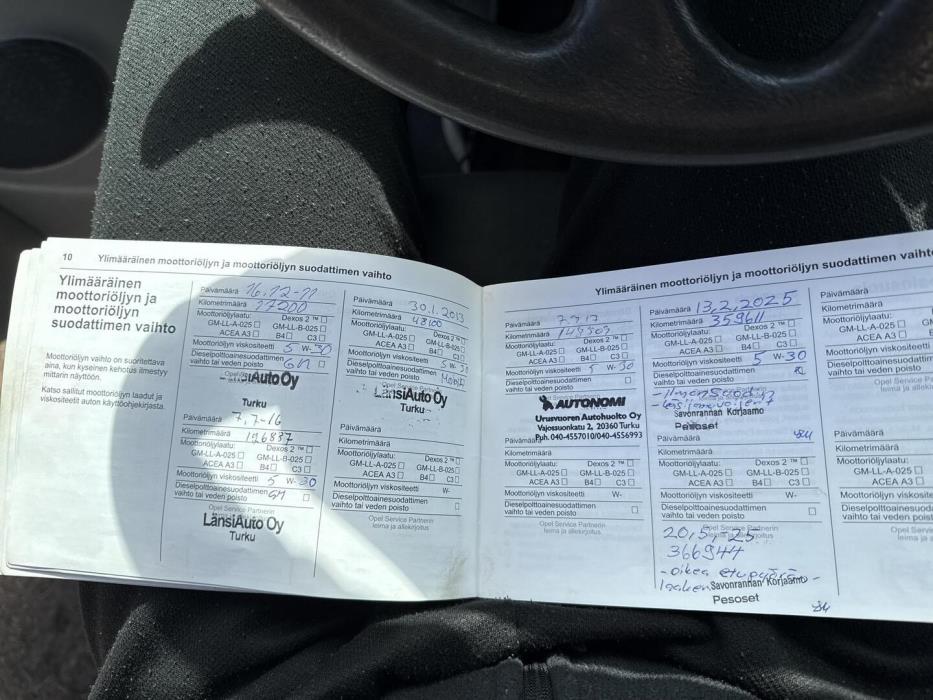 10 Ylimääräinen moottoriöljyn ja moottoriöljyn suodattimen vaihto
Ylimääräinen
moottoriöljyn ja
moottoriöljyn
suodattimen vaihto
Moottoriöljyn vaihto on suoritettava
aina, kun kyseinen kehotus ilmestyy
mittarin näyttöön.
Katso sallitut moottoriöljyn laadut ja
viskositeetit auton käyttöohjekirjasta.
Päivämäärä 16.12-11
Kilometrimäärä 17200
Moottoriöljylaatu: Dexos 2 ™ ☐
GM-LL-A-025 ☐ GM-LL-B-025 ☐
ACEA A3 ☐ B4 ☐ C3 ☐
Moottoriöljyn viskositeetti 5 W-30
Dieselpolttoainesuodattimen
vaihto tai veden poisto GM ☐
LänsiAuto Oy
Turku
Päivämäärä 7.7-16
Kilometrimäärä 126837
Moottoriöljylaatu: Dexos 2 ™ ☐
GM-LL-A-025 ☐ GM-LL-B-025 ☐
ACEA A3 ☐ B4 ☐ C3 ☐
Moottoriöljyn viskositeetti 5 W-30
Dieselpolttoainesuodattimen
vaihto tai veden poisto GM ☐
Opel Service Partnerin
LänsiAuto Oy
Turku
Päivämäärä 30.1.2013
Kilometrimäärä 43100
Moottoriöljylaatu: Dexos 2 ™ ☐
GM-LL-A-025 ☐ GM-LL-B-025 ☐
ACEA A3 ☐ B4 ☐ C3 ☐
Moottoriöljyn viskositeetti 5 W-30
Dieselpolttoainesuodattimen
vaihto tai veden poisto
LänsiAuto Oy
Turku
Päivämäärä
Kilometrimäärä
Moottoriöljylaatu: Dexos 2 ™ ☐
GM-LL-A-025 ☐ GM-LL-B-025 ☐
ACEA A3 ☐ B4 ☐ C3 ☐
Moottoriöljyn viskositeetti W-
Dieselpolttoainesuodattimen
vaihto tai veden poisto ☐
Opel Service Partnerin
leima ja allekirjoitus
Ylimääräinen moottoriöljyn ja moottoriöljyn suodattimen vaihto
Päivämäärä
Kilometrimäärä
Moottoriöljylaatu: Dexos 2 ™ ☐
GM-LL-A-025 ☐ GM-LL-B-025 ☐
ACEA A3 ☐ B4 ☐ C3 ☐
Moottoriöljyn viskositeetti 5 W-30
Dieselpolttoainesuodattimen
vaihto tai veden poisto ☐
AUTONOMI
Urusvuoren Autohuolto Oy
Vajossuonkatu 2, 20360 Turku
Puh. 040-4557010/040-4556993
Päivämäärä
Kilometrimäärä
Moottoriöljylaatu: Dexos 2 ™ ☐
GM-LL-A-025 ☐ GM-LL-B-025 ☐
ACEA A3 ☐ B4 ☐ C3 ☐
Moottoriöljyn viskositeetti W-
Dieselpolttoainesuodattimen
vaihto tai veden poisto ☐
Opel Service Partnerin
leima ja allekirjoitus
Päivämäärä 13.2.2025
Kilometrimäärä 359611
Moottoriöljylaatu: Dexos 2 ™ ☐
GM-LL-A-025 ☐ GM-LL-B-025 ☐
ACEA A3 ☐ B4 ☐ C3 ☐
Moottoriöljyn viskositeetti 5 W-30
Dieselpolttoainesuodattimen
vaihto tai veden poisto
Savonrannan Korjaamo
Pesoset
Kilometrimäärä
Moottoriöljylaatu: Dexos 2 ™ ☐
GM-LL-A-025 ☐ GM-LL-B-025 ☐
ACEA A3 ☐ B4 ☐ C3 ☐
Moottoriöljyn viskositeetti W-
Dieselpolttoainesuodattimen
vaihto tai veden poisto ☐
Opel Service Partnerin
leima ja allekirjoitus
20,5,25
366944
- oikea etupyörä
Savonrannan Korjaamo
Pesoset
Päivämäärä
Kilometrimäärä
Moottoriöljylaatu:
GM-LL-A-025 ☐
ACEA A3 ☐
Dieselpolttoainesuodattimen
vaihto tai veden poisto
Opel Service
leima ja
Päivämäärä
Kilometrimäärä
Moottoriöljylaatu:
GM-LL-A-025 ☐
ACEA A3 ☐
Dieselpolttoainesuo
vaihto tai veden poisto
Opel Service
leima ja a